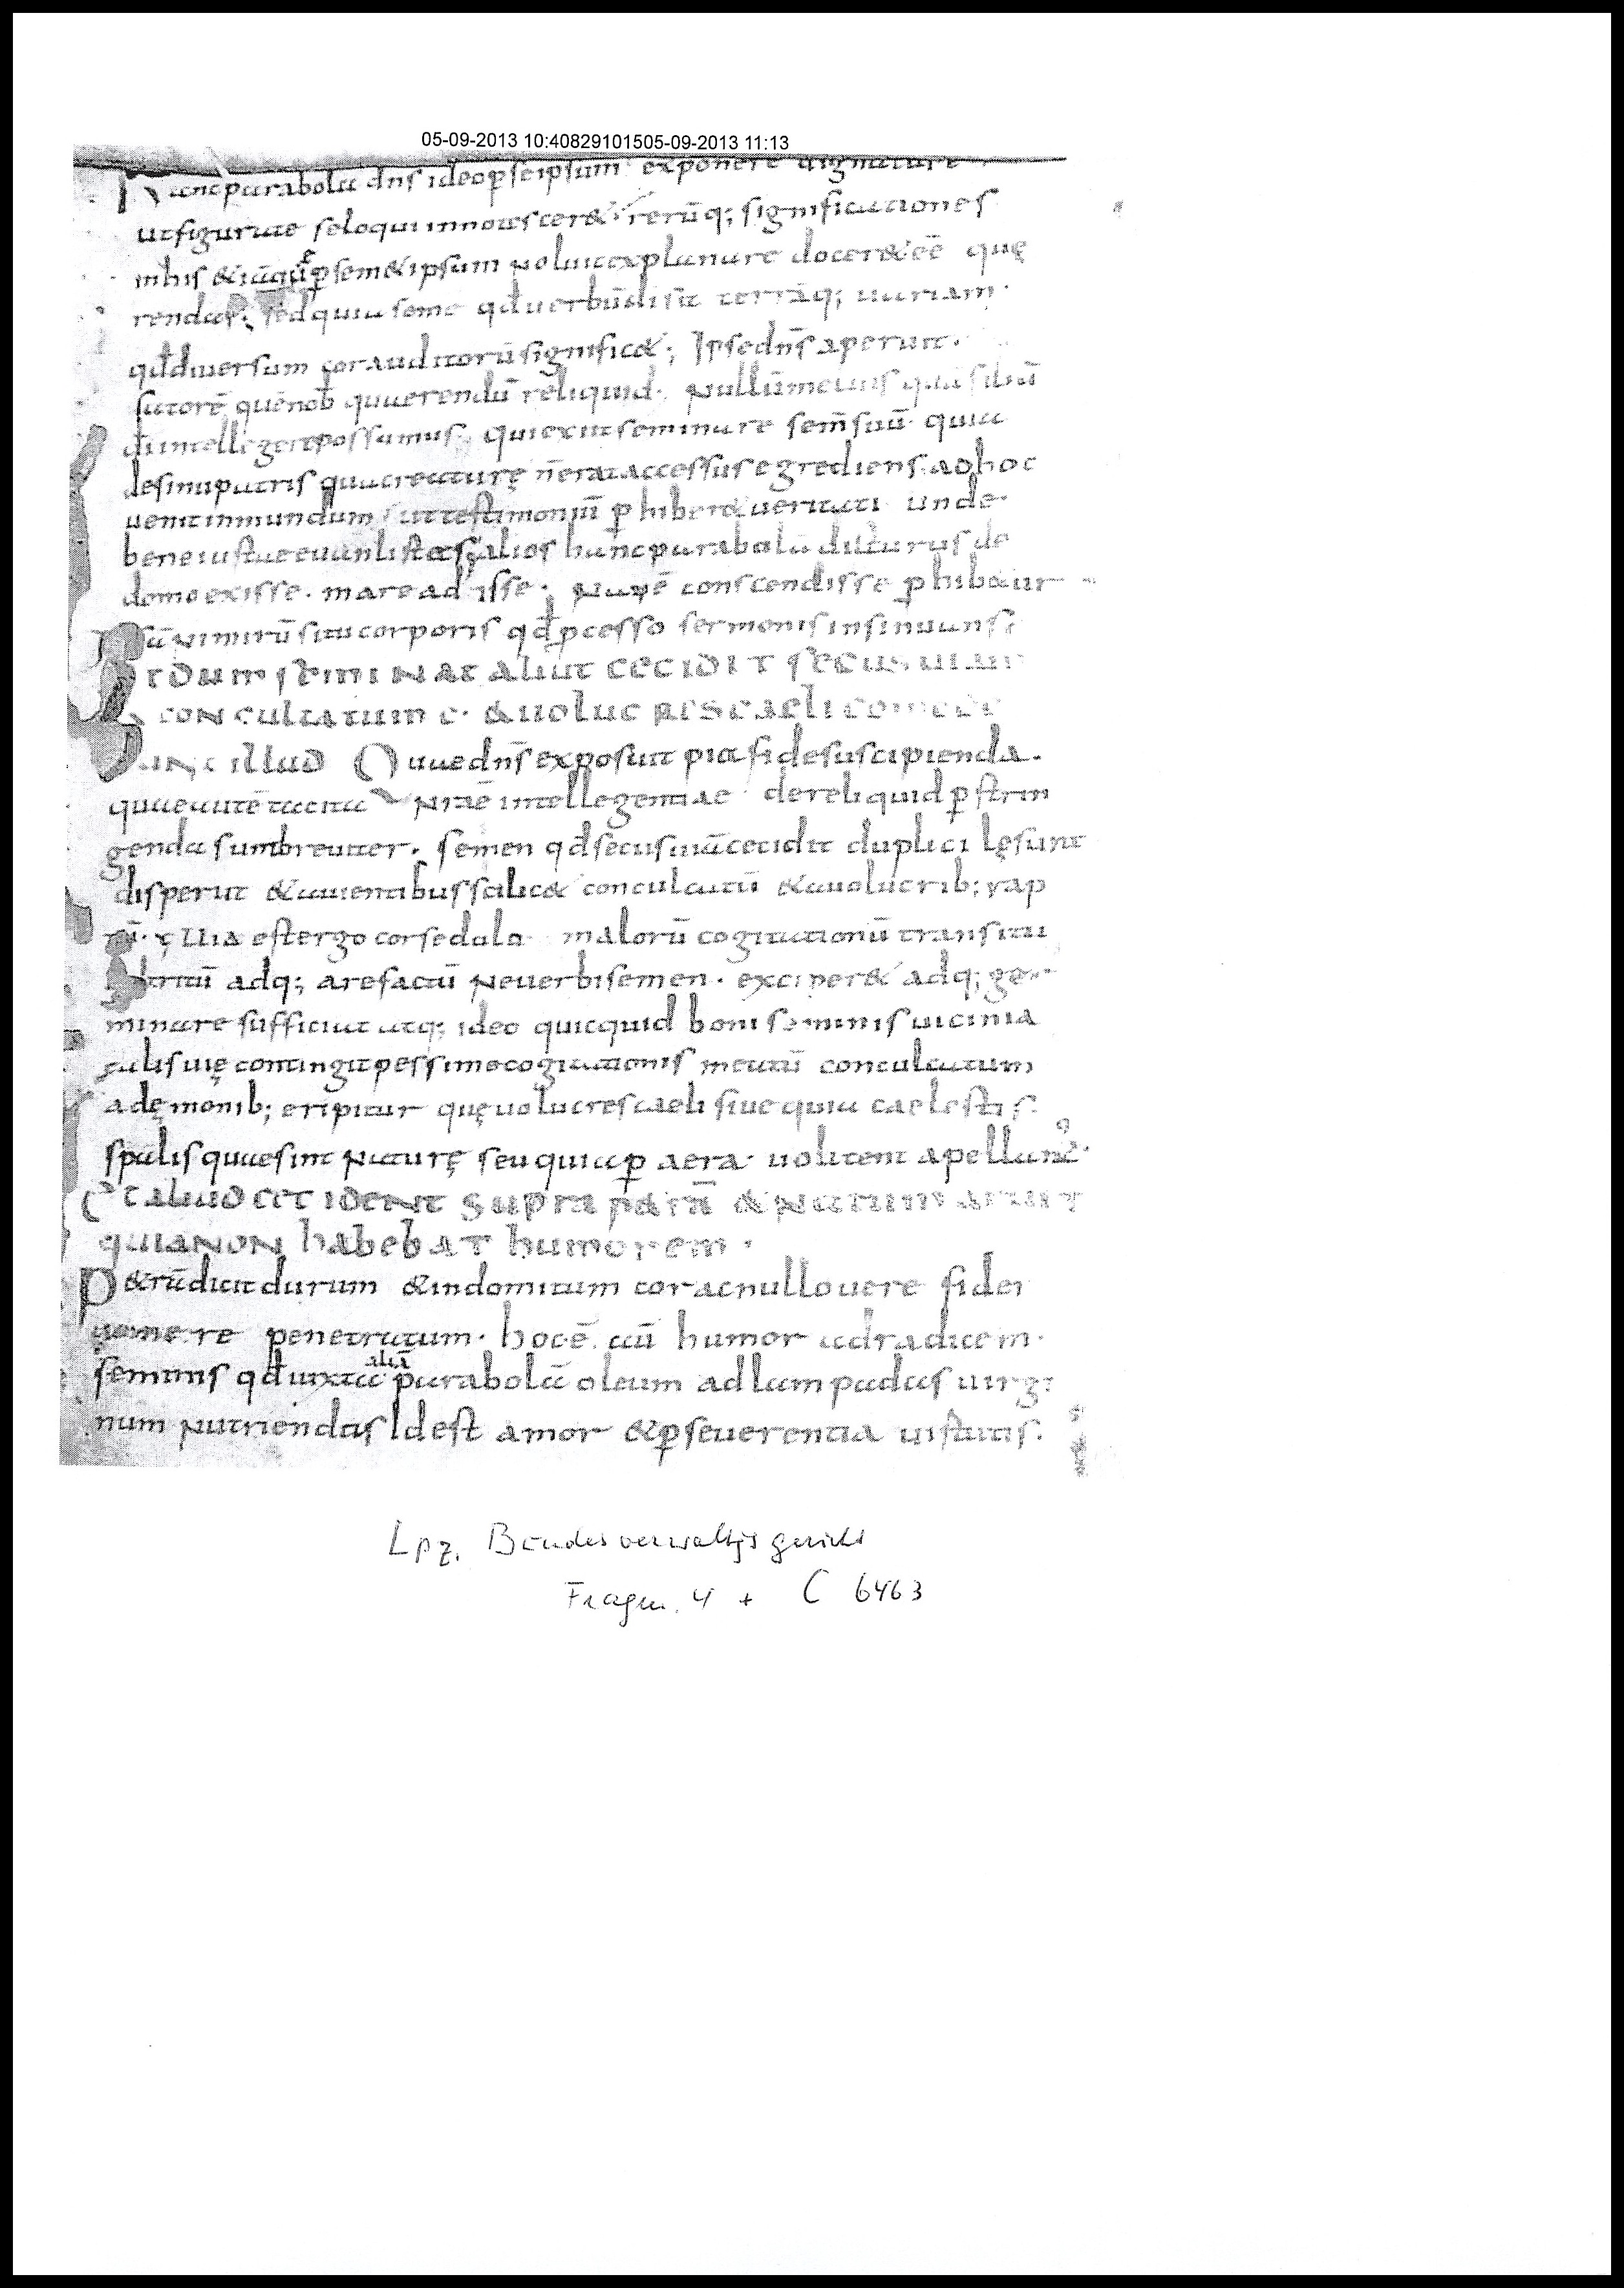 05-09-2013 10:40829101505-09-2013 11:13
Nancparabolā dn̄s ideoꝑseipsum exponere dignatur
utfigurate seloqui innotescer& rerūq; significationes
inhis &iāquę ꝑsem&ipsum noluit explanare docer&ēē quę
rendas. sed quia seme qđ uerbūdī sit terrāq; uariam
qđdiuersum corauditorūsignific&; Ipsedn̄s aperuit.
satorē quēnob quaerendū reliquid. Nullūmelius quā
dīintellegerepossumus. quiexiit seminare sem̄ suū quia
desinupatris quacreaturę n̄erataccessusegrediens adhoc
uenitinmundum ut testimoniū ꝑhiber& ueritati unde
beneiustae euanlistas alios hancparabolā dicturus de
domoexisse. maread isse. Nauē conscendisse ꝑhib&ur
sūNimirū situ corporis qđ ꝑcesso sermonis insinuans
et dum seminat aliut cecidit secus uiam
conculcatum ē. & uolucres caeli comede
illud Quaedn̄s exposuit pia fidesuscipienda.
quaeautē tacita nr̄ae intellegentiae dereliquid ꝑstrin
genda suntbreuiter. semen qđ secus uiācecidit duplici lęsunt
disperiit &auientibus scilic& conculcatū &auolucrib; rap
tū. Uia estergo cor sedulo malorū cogitationū transitu
adtritū adq; arefactū Neuerbisemen. exciper& adq; ger
minare sufficiat atq; ideo quicquid boni seminis uicinia
talis uię contingit pessimocogitationis meatū conculcatum
adęmonib; eripitur quęuolucres caeli siue quia caelestis
spalis quaesint naturę seu quiaꝑ aera. uolitent apellant᷑.
Et aliud cecident supra petrā & natum aruit
quia non habebat humorem.
Petrādicit durum &indomitum cor acnullo uere fidei
uomere penetratum. hocē aū humor adradicem.
seminis qđ iuxta aliā parabolā oleum adlampadas uirgi
num nutriendas Idest amor &ꝑseuerentia uistutis.
Lpz. Bundesverwaltgsgericht
Fragm. 4 + C 6463